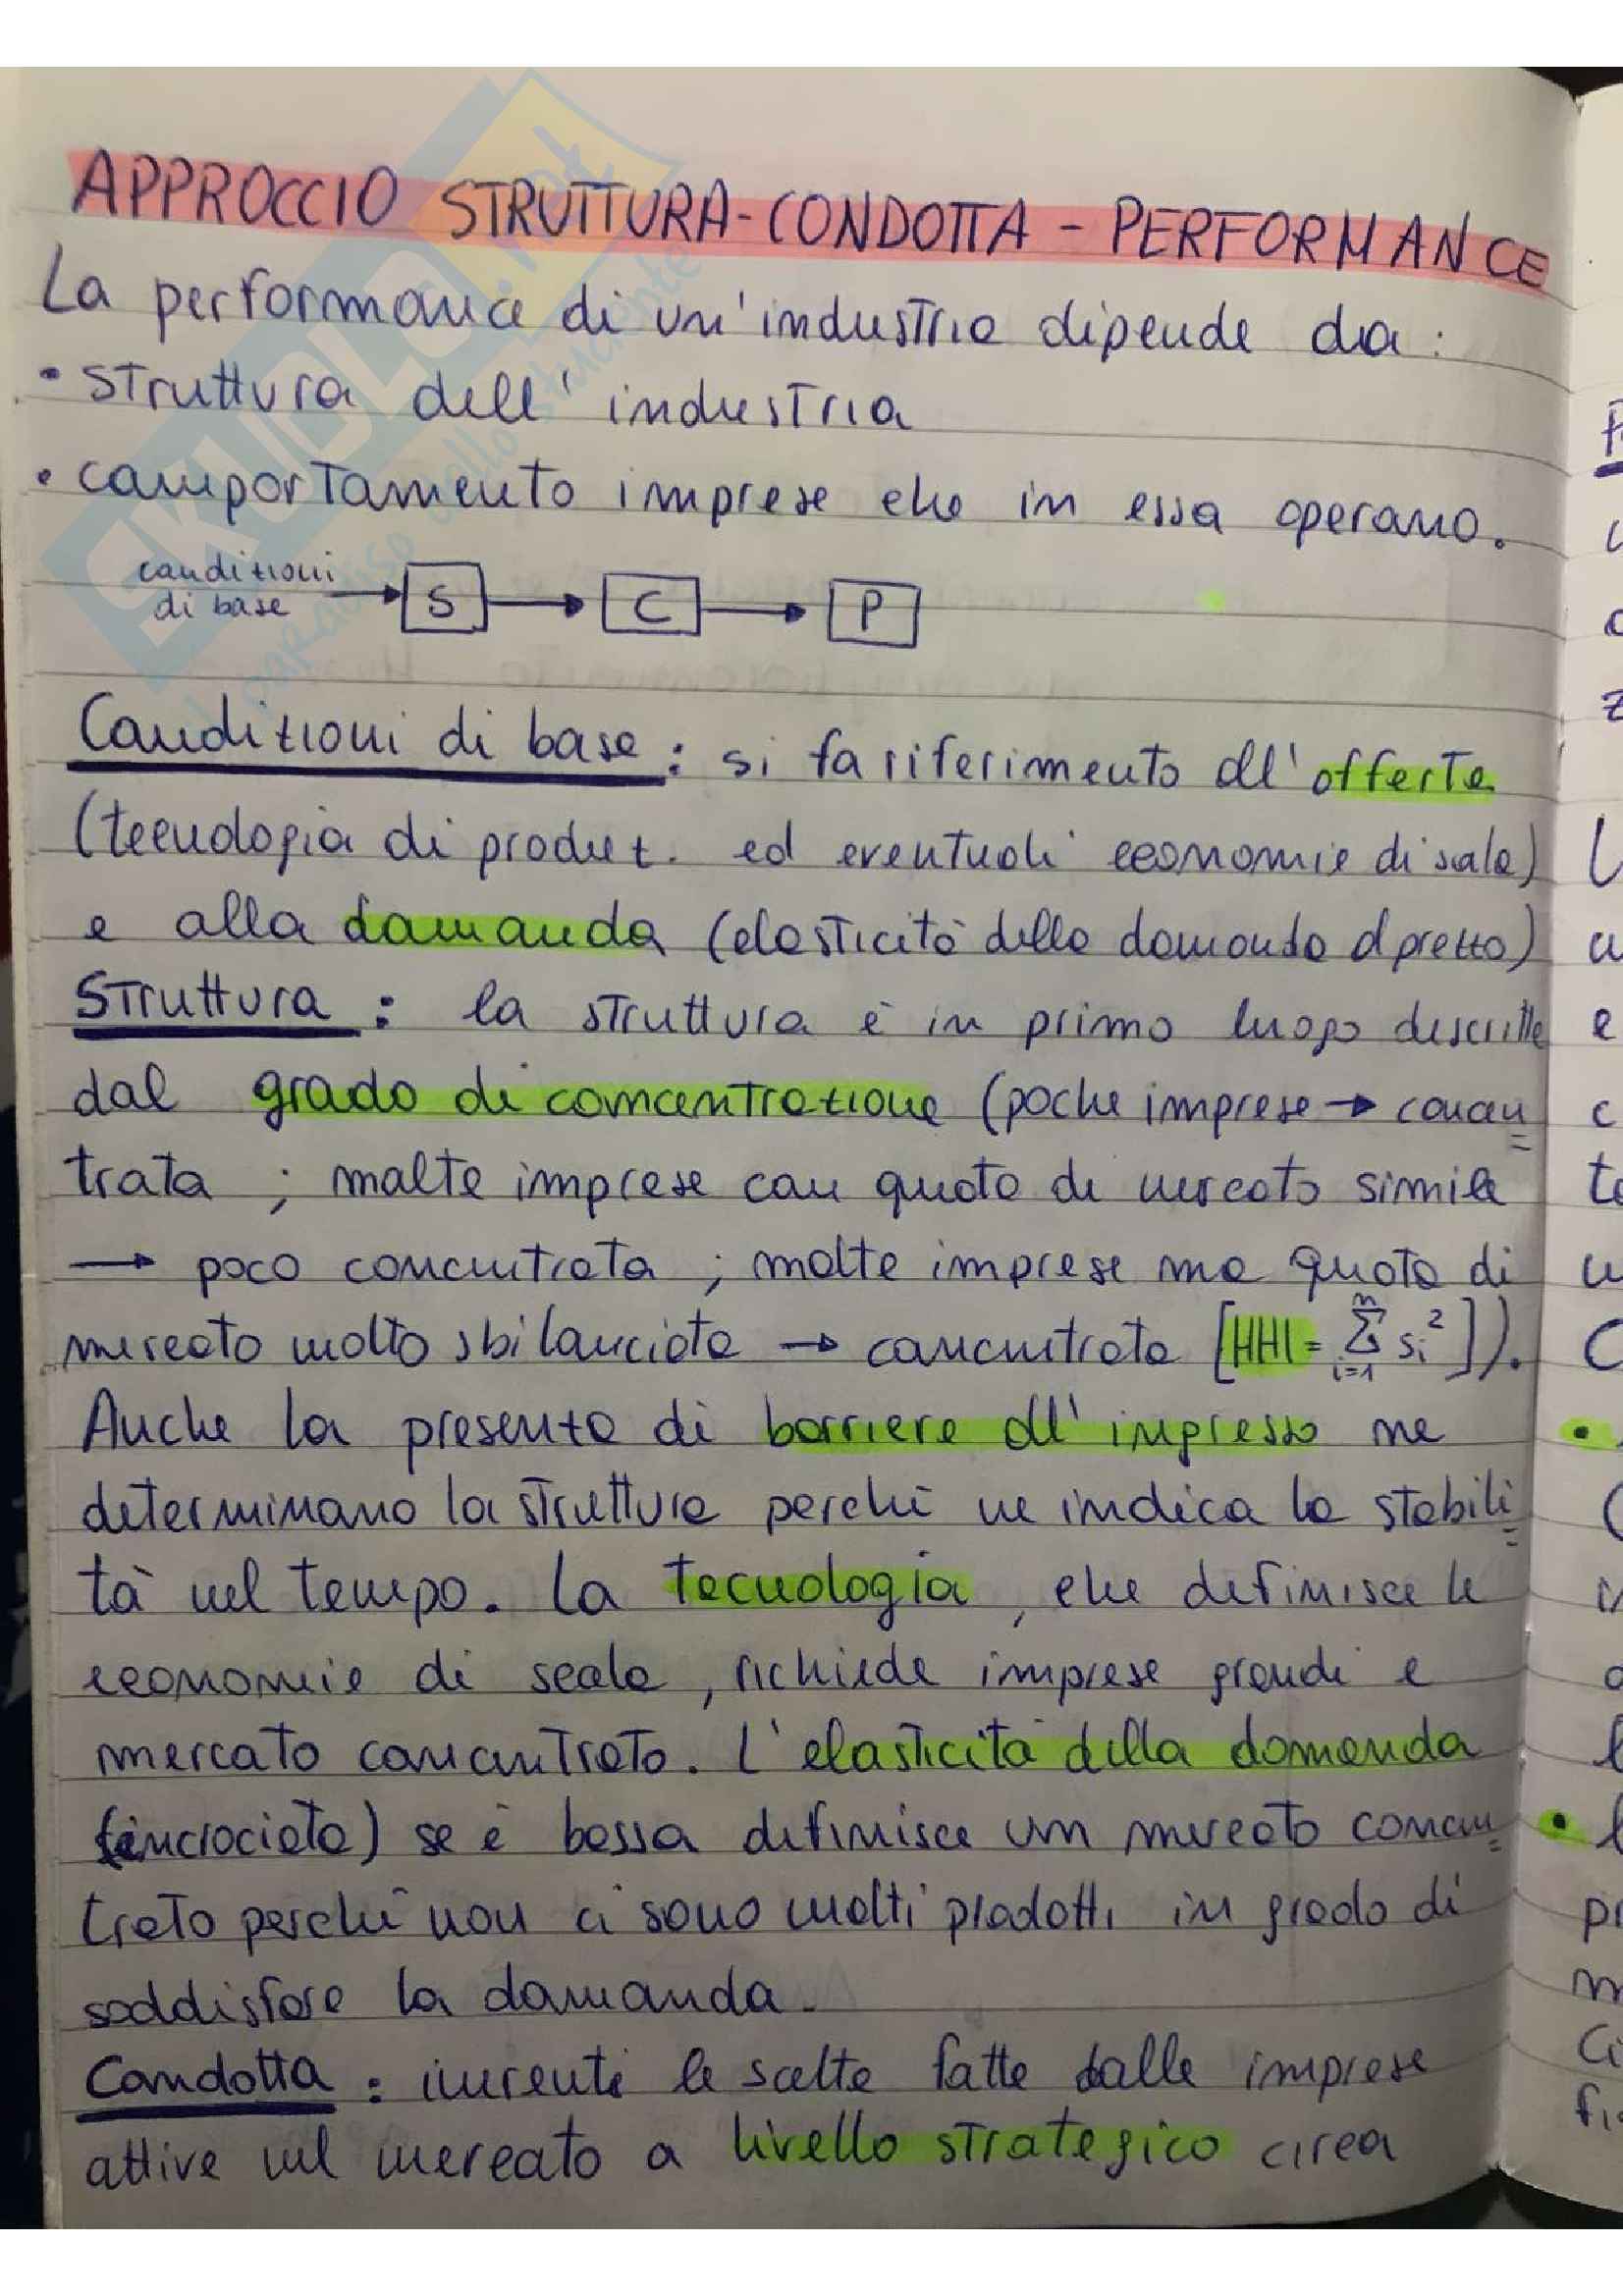 APPROCCIO STRUTTURA-CONDOTTA - PERFORMANCE
La performance di un'industria dipende da:
• struttura dell'industria
• comportamento imprese che in essa operano.
condizioni
di base → S → C → P
Condizioni di base: si fa riferimento all'offerta
(tecnologia di produz. ed eventuali economie di scala)
e alla domanda (elasticità della domanda al prezzo)
Struttura: la struttura è in primo luogo descritta
dal grado di concentrazione (poche imprese → concen
trata ; molte imprese con quota di mercato simile
→ poco concentrata ; molte imprese ma quota di
mercato molto sbilanciata → concentrata [HHI = Σ i=1 n si²]).
Anche la presenza di barriere all'ingresso ne
determinano la struttura perché ne indica la stabili
tà nel tempo. La tecnologia, che definisce le
economie di scala, richiede imprese grandi e
mercato concentrato. L'elasticità della domanda
(incrociata) se è bassa definisce un mercato concen
trato perché non ci sono molti prodotti in grado di
soddisfare la domanda.
Condotta: inerenti le scelte fatte dalle imprese
attive nel mercato a livello strategico circa
SKUOLA.net
il paradiso dello studente